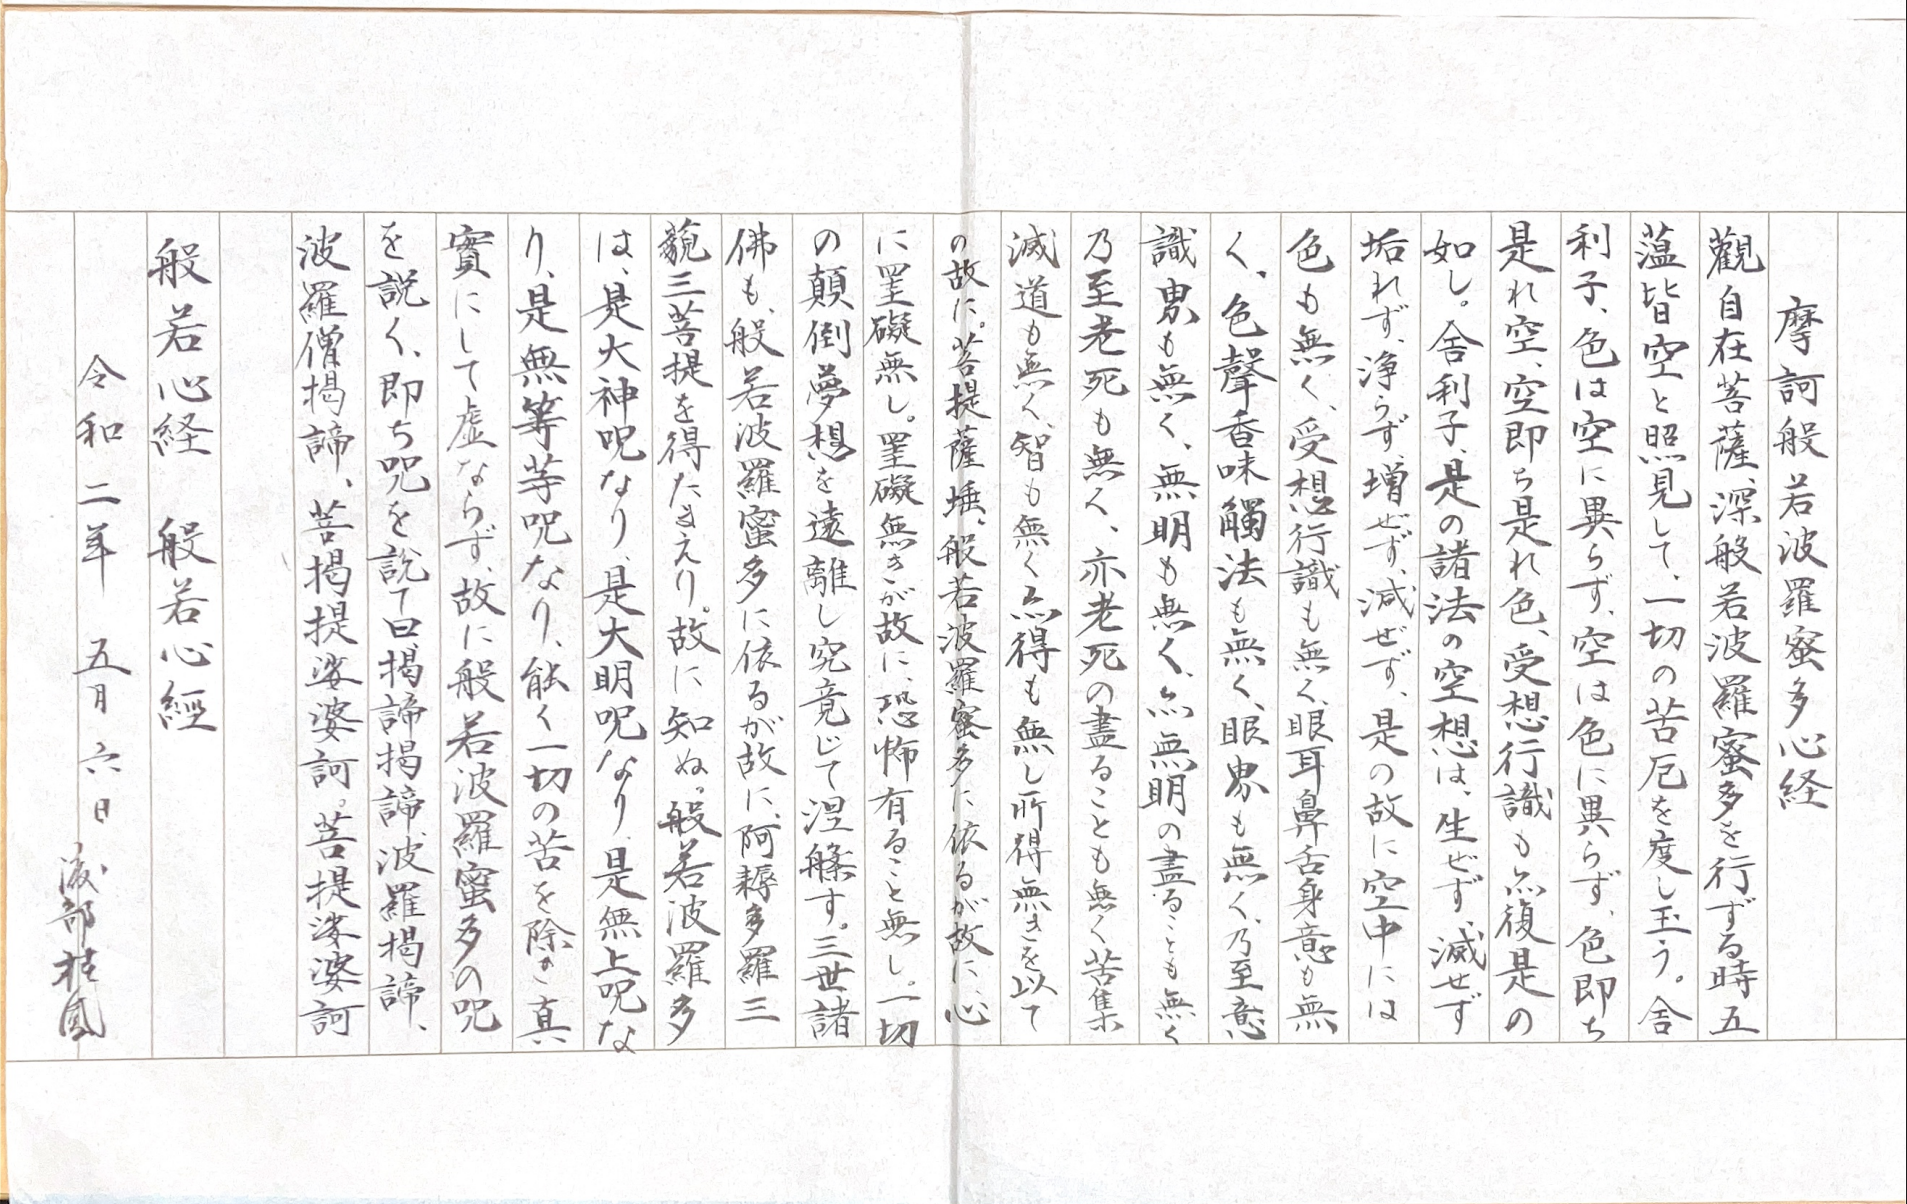 摩訶般若波羅蜜多心経
觀自在菩薩、深般若波羅蜜多を行ずる時五
蘊皆空と照見して、一切の苦厄を度し玉う。舎
利子、色は空に異らず、空は色に異らず、色即ち
是れ空、空即ち是れ色、受想行識も亦復是の
如し。舎利子、是の諸法の空想は、生ぜず、滅せず
垢れず、浄らず、増ぜず、減ぜず、是の故に空中には
色も無く、受想行識も無く、眼耳鼻舌身意も無
く、色聲香味觸法も無く、眼界も無く、乃至意
識界も無く、無明も無く、亦無明の盡ることも無く
乃至老死も無く、亦老死の盡ることも無く苦集
滅道も無く、智も無く亦得も無し所得無きを以て
の故に。菩提薩埵、般若波羅蜜多に依るが故に、心
に罣礙無し。罣礙無きが故に、恐怖有ること無し。一切
の顛倒夢想を遠離し究竟じて涅槃す。三世諸
佛も、般若波羅蜜多に依るが故に、阿耨多羅三
藐三菩提を得たまえり。故に知ぬ。般若波羅多
は、是大神呪なり、是大明呪なり、是無上呪な
り、是無等等呪なり、能く一切の苦を除き真
實にして虚ならず、故に般若波羅蜜多の呪
を説く、即ち呪を説て曰、掲諦掲諦、波羅掲諦、
波羅僧掲諦、菩掲提娑婆訶。菩提娑婆訶
般若心経　般若心經
令和二年　五月六日　渡部